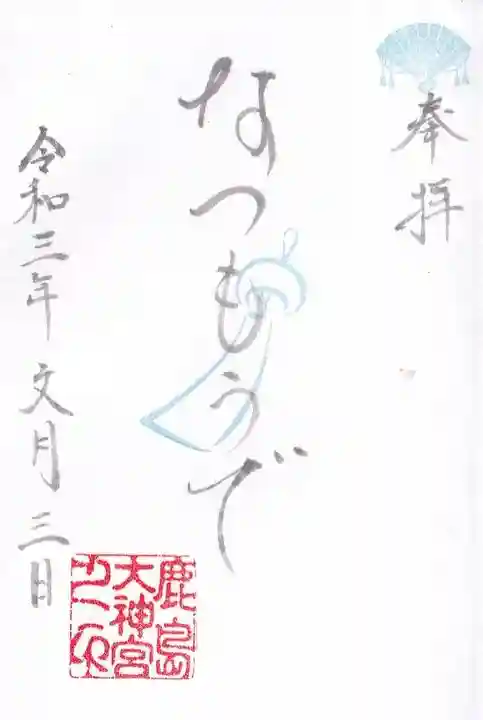 奉拝
なつもうで
令和三年文月三日
鹿島
大神宮